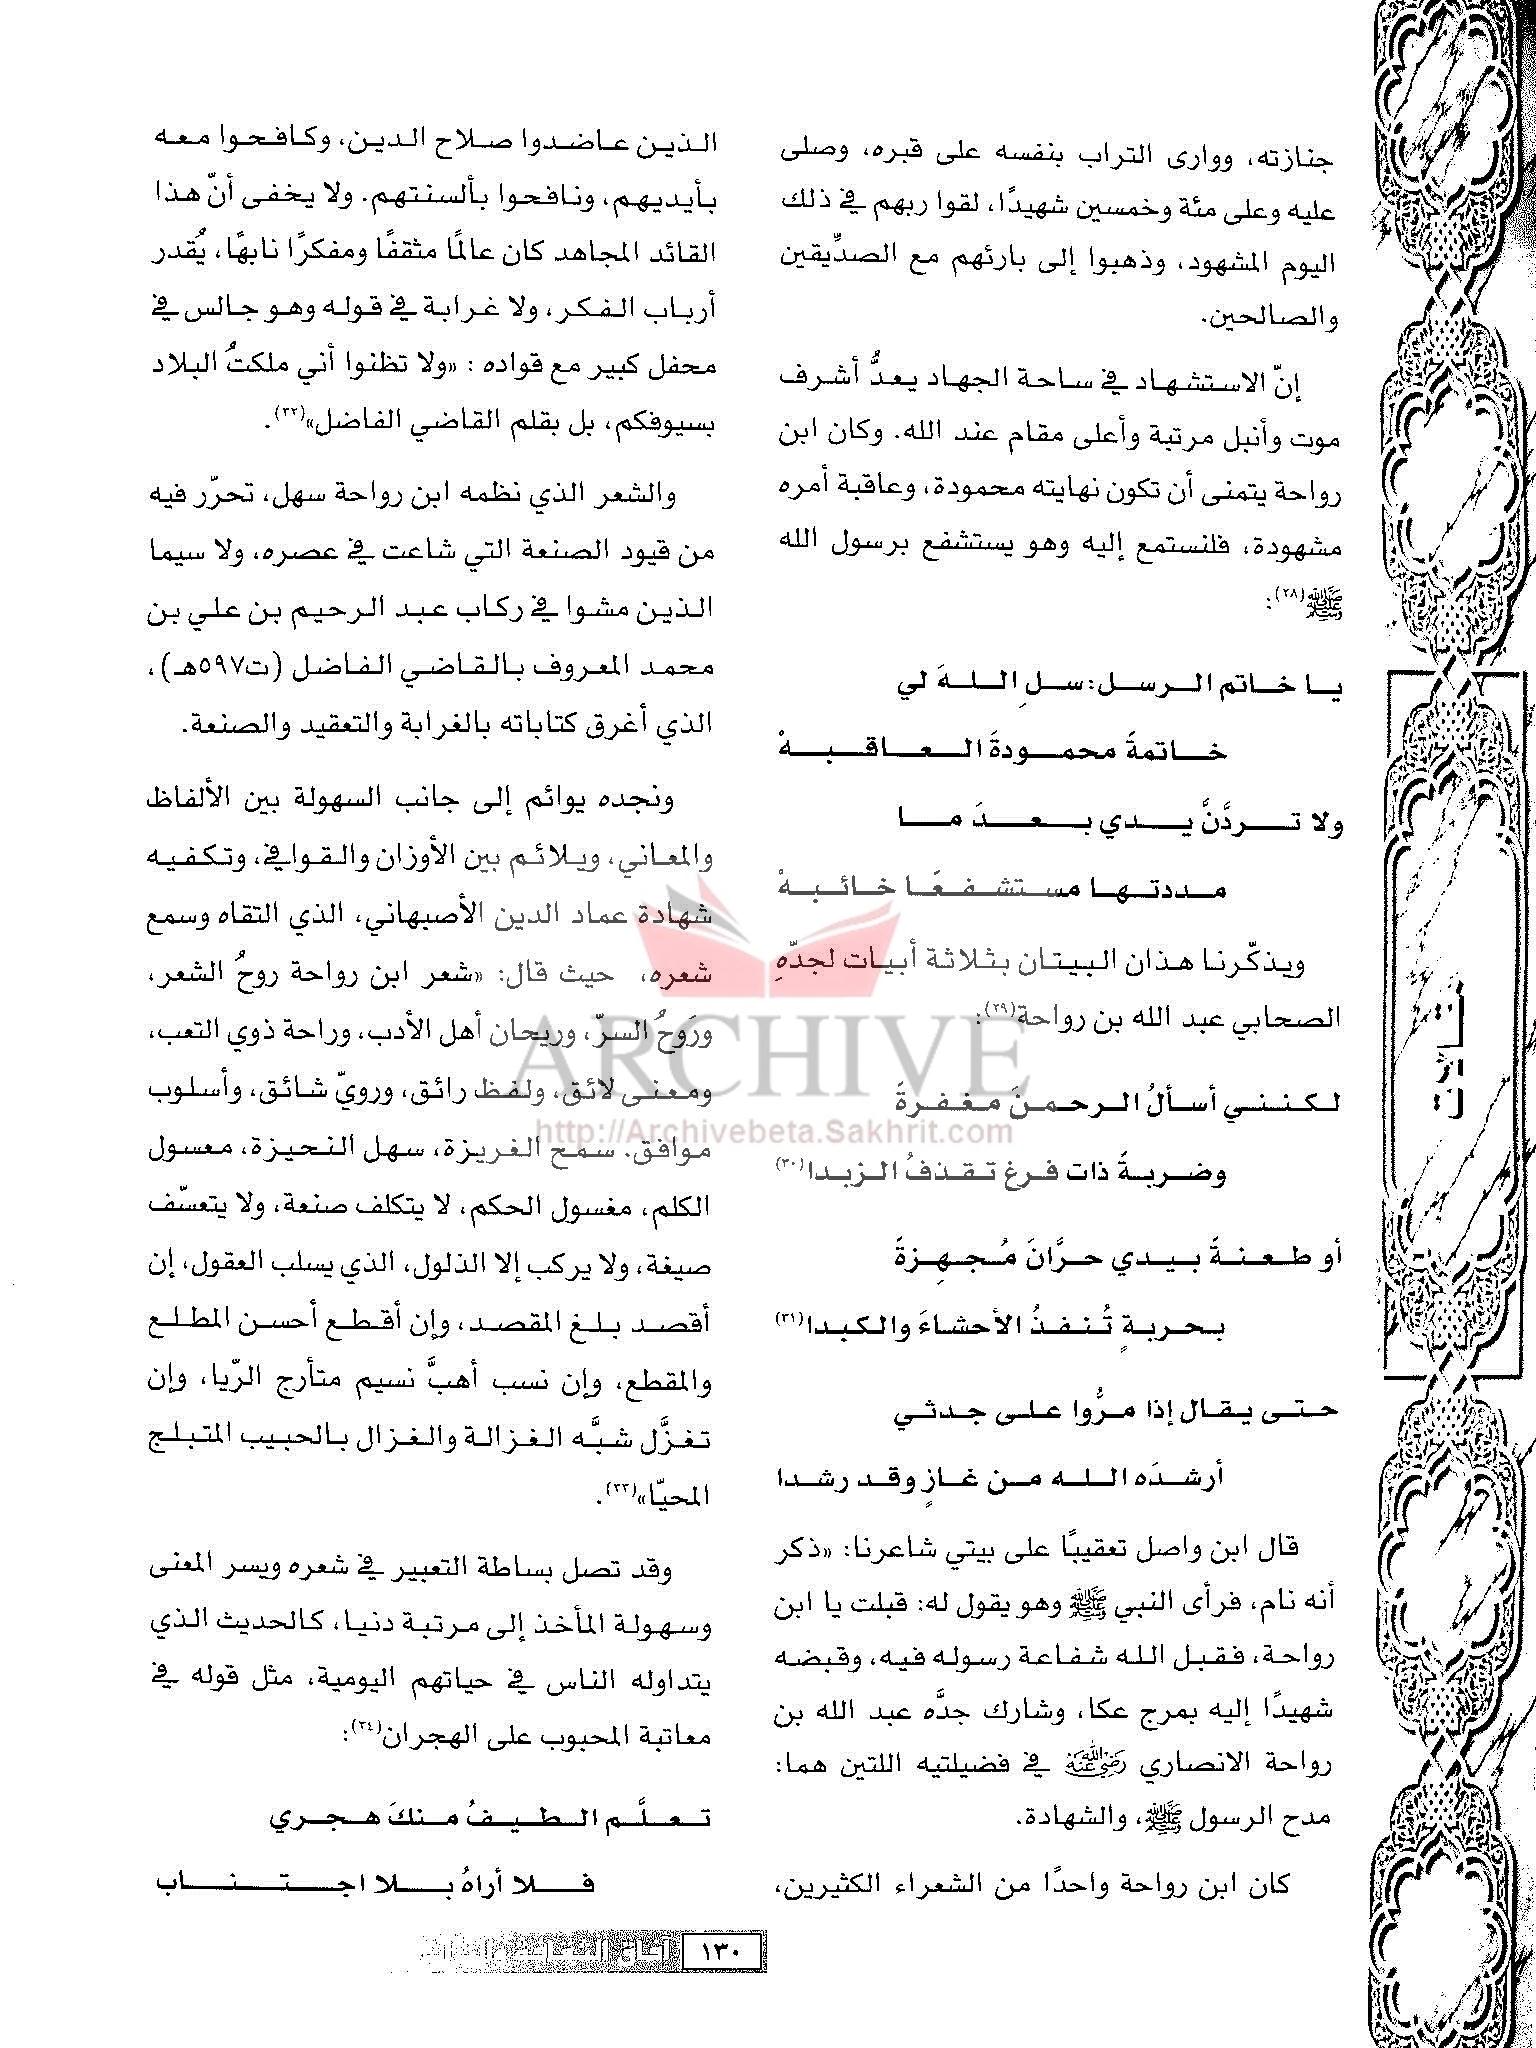 جنازته، ووارى التراب بنفسه على قبره، وصلى
عليه وعلى مئة وخمسين شهيدًا، لقوا ربهم في ذلك
اليوم المشهود، وذهبوا إلى بارئهم مع الصدِّيقين
والصالحين.
إنّ الاستشهاد في ساحة الجهاد يعدُّ أشرف
موت وأنبل مرتبة وأعلى مقام عند الله. وكان ابن
رواحة يتمنى أن تكون نهايته محمودة، وعاقبة أمره
مشهودة، فلنستمع إليه وهو يستشفع برسول الله
ﷺ(٢٨):
يا خاتم الرسل: سلِ اللهَ لي
خاتمةً محمودةَ العاقبهْ
ولا تردَّنَّ يدي بعدَ ما
مددتها مستشفعًا خائبهْ
ويذكّرنا هذان البيتان بثلاثة أبيات لجدّهِ
الصحابي عبد الله بن رواحة(٢٩):
لكنني أسألُ الرحمنَ مغفرةً
وضربةً ذات فرغ تقذفُ الزبدا(٣٠)
أو طعنةً بيدي حرَّانَ مُجهِزةً
بحربةٍ تُنفذُ الأحشاءَ والكبدا(٣١)
حتى يقال إذا مرُّوا على جدثي
أرشدَه الله من غازٍ وقد رشدا
قال ابن واصل تعقيبًا على بيتي شاعرنا: «ذكر
أنه نام، فرأى النبي ﷺ وهو يقول له: قبلت يا ابن
رواحة، فقبل الله شفاعة رسوله فيه، وقبضه
شهيدًا إليه بمرج عكا، وشارك جدَّه عبد الله بن
رواحة الانصاري رضي الله عنه في فضيلتيه اللتين هما:
مدح الرسول ﷺ، والشهادة.
كان ابن رواحة واحدًا من الشعراء الكثيرين،
الذين عاضدوا صلاح الدين، وكافحوا معه
بأيديهم، ونافحوا بألسنتهم. ولا يخفى أنّ هذا
القائد المجاهد كان عالمًا مثقفًا ومفكرًا نابهًا، يُقدر
أرباب الفكر، ولا غرابة في قوله وهو جالس في
محفل كبير مع قواده : «ولا تظنوا أني ملكتُ البلاد
بسيوفكم، بل بقلم القاضي الفاضل»(٣٢).
والشعر الذي نظمه ابن رواحة سهل، تحرّر فيه
من قيود الصنعة التي شاعت في عصره، ولا سيما
الذين مشوا في ركاب عبد الرحيم بن علي بن
محمد المعروف بالقاضي الفاضل (ت٥٩٧هـ)،
الذي أغرق كتاباته بالغرابة والتعقيد والصنعة.
ونجده يوائم إلى جانب السهولة بين الألفاظ
والمعاني، ويلائم بين الأوزان والقوافي، وتكفيه
شهادة عماد الدين الأصبهاني، الذي التقاه وسمع
شعره، حيث قال: «شعر ابن رواحة روحُ الشعر،
ورَوحُ السرّ، وريحان أهل الأدب، وراحة ذوي التعب،
ومعنى لائق، ولفظ رائق، ورويّ شائق، وأسلوب
موافق. سمح الغريزة، سهل النحيزة، معسول
الكلم، مغسول الحكم، لا يتكلف صنعة، ولا يتعسّف
صيغة، ولا يركب إلا الذلول، الذي يسلب العقول، إن
أقصد بلغ المقصد، وإن أقطع أحسن المطلع
والمقطع، وإن نسب أهبَّ نسيم متأرج الرّيا، وإن
تغزَّل شبَّه الغزالة والغزال بالحبيب المتبلج
المحيّا»(٣٣).
وقد تصل بساطة التعبير في شعره ويسر المعنى
وسهولة المأخذ إلى مرتبة دنيا، كالحديث الذي
يتداوله الناس في حياتهم اليومية، مثل قوله في
معاتبة المحبوب على الهجران(٣٤):
تعلَّم الطيفُ منكَ هجري
فلا أراهُ بلا اجتناب
مقالات
١٣٠
ARCHIVE
http://Archivebeta.Sakhrit.com